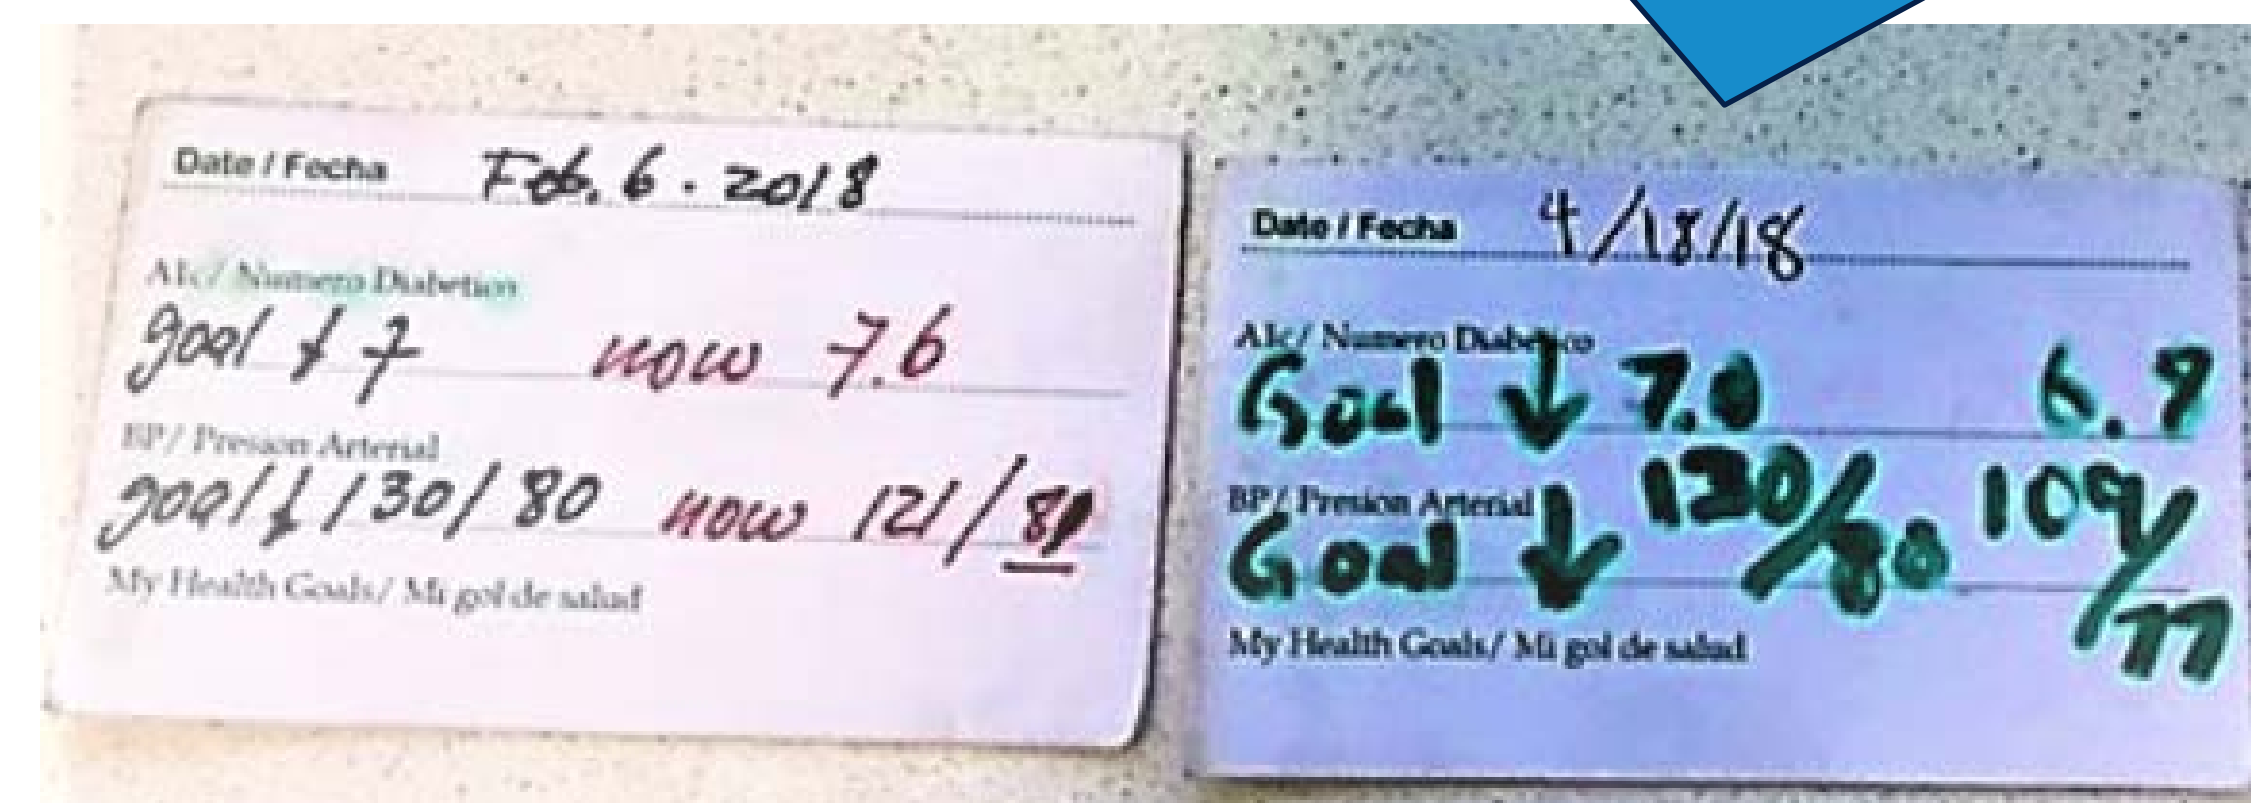 Date / Fecha Feb. 6 . 2018
A1c/ Numero Diabetico
goal ↓ 7 now 7.6
BP/ Presion Arterial
goal ↓ 130/80 now 121/
My Health Goals/ Mi gol de salud
Date / Fecha 4/18/18
A1c/ Numero Diabetico
Goal ↓ 7.0 6.9
BP/ Presion Arterial
Goal ↓ 130/80 109/77
My Health Goals/ Mi gol de salud